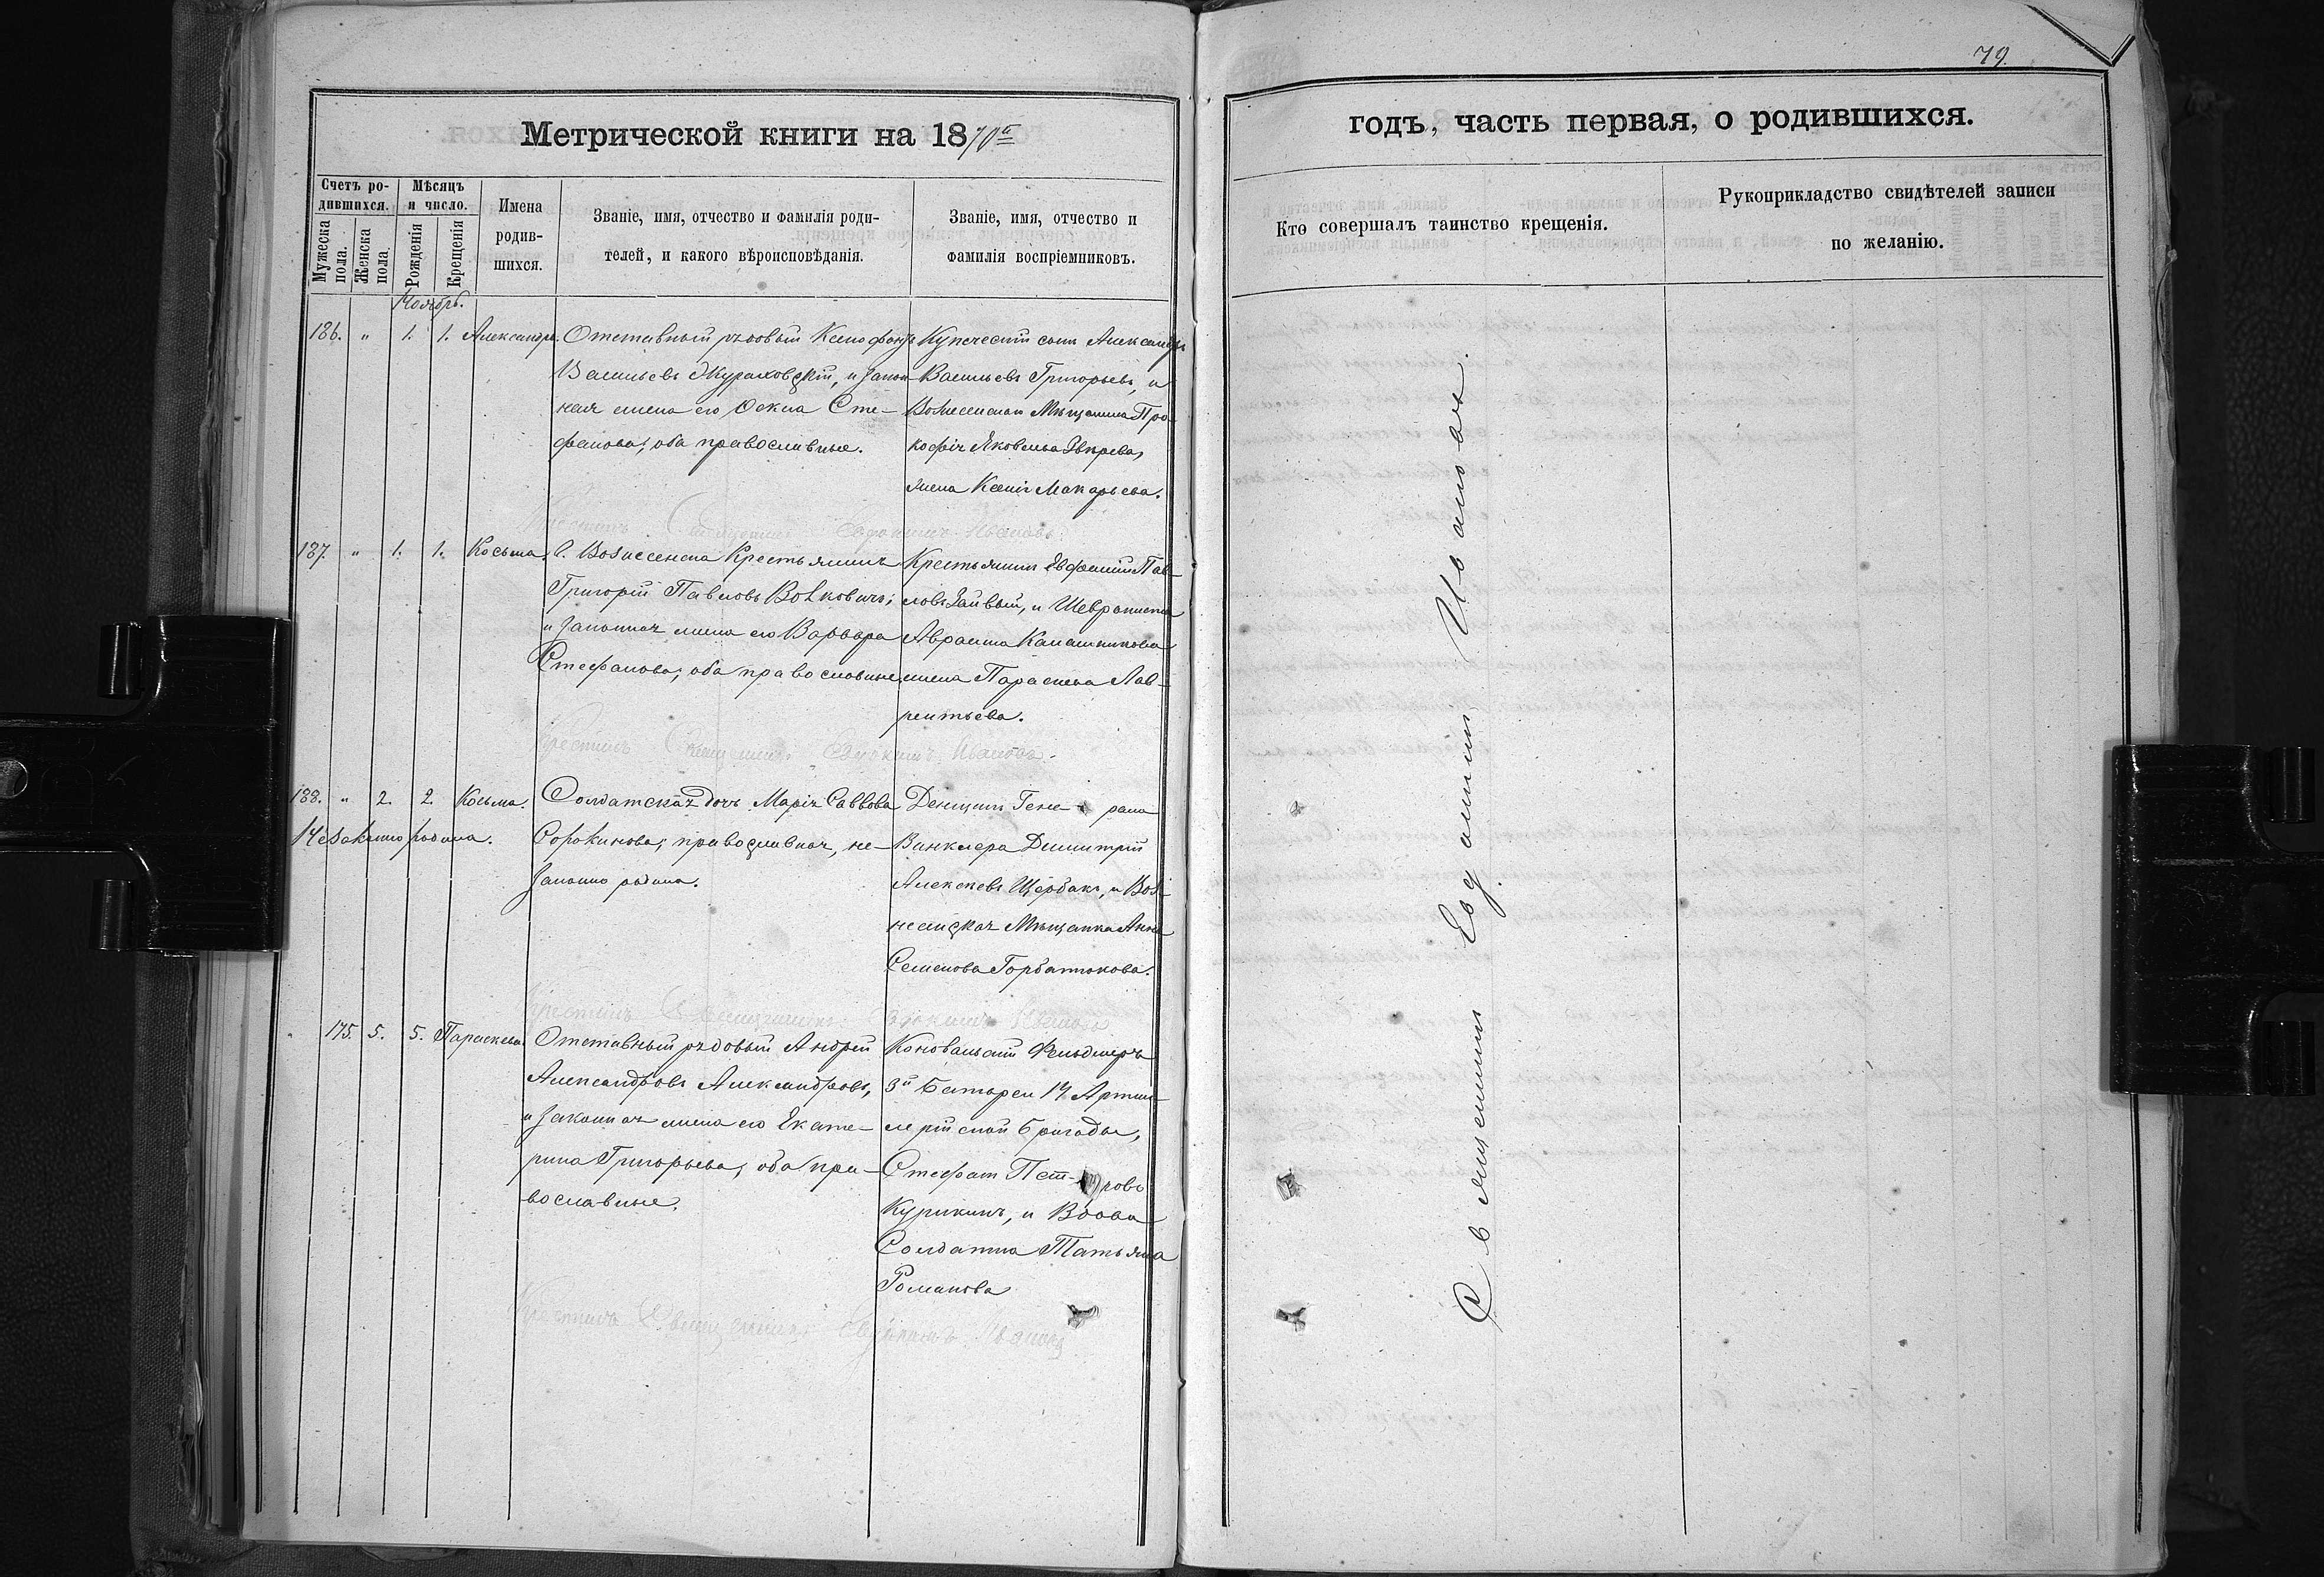 79.
Метрической книги на 1870й
годъ, часть первая, о родившихся.
Счетъ ро-
дившихся.
Мѣсяцъ
и число.
Мужеска
пола.
Женска
пола.
Рожденія
Крещенія
Имена
родив-
шихся.
Званіе, имя, отчество и фамилія роди-
телей, и какого вѣроисповѣданія.
Званіе, имя, отчество и
фамилія воспріемниковъ.
Кто совершалъ таинство крещенія.
Рукоприкладство свидѣтелей записи
по желанію.
Ноябрь.
186. " 1. 1. Александръ.
Отставный рядовый Ксенофонтъ
Васильевъ и закон-
ная жена его Сте-
фанова; оба православные.
Купеческій сынъ Александръ
Васильевъ Григорьевъ, и
Вознесенскаго Мѣщанина Про-
кофія Яковлева
жена Ксенія Макарьева.
Крестилъ Священникъ Евдокимъ Ивановъ.
187. " 1. 1. Косьма.
г. Вознесенска Крестьянинъ
Григорій Павловъ Волковичъ;
и законная жена его Варвара
Стефанова; оба православные.
Крестьянинъ Евфимій Пав-
ловъ и
Авраама Калашникова
жена Параскева Лав-
рентьева.
Крестилъ Священникъ Евдокимъ Ивановъ.
188. " 2. 2. Косьма.
Незаконно родила.
Солдатская дочь Марія Саввова
Сорокинова; православная, не-
законно родила.
Денщикъ Гене- рала
Винклера Димитрій
Алексеевъ Щербакъ, и Воз-
несенская Мѣщанка Анна
Семенова Горбатюкова.
Крестилъ Священникъ Евдокимъ Ивановъ
" 175. 5. 5. Параскева.
Отставный рядовый Андрей
Александровъ Александровъ,
и законная жена его Екате-
рина Григорьева; оба пра-
вославные.
Коновальскій Фельдшеръ
3й Батареи 14 Артил-
лерійской Бригады,
Стефанъ Пет- ровъ
Курикинъ, и Вдова
Солдатка Татьяна
Романова
Крестилъ Священникъ Евдокимъ Ивановъ
Священникъ Евдокимъ Ивановъ.